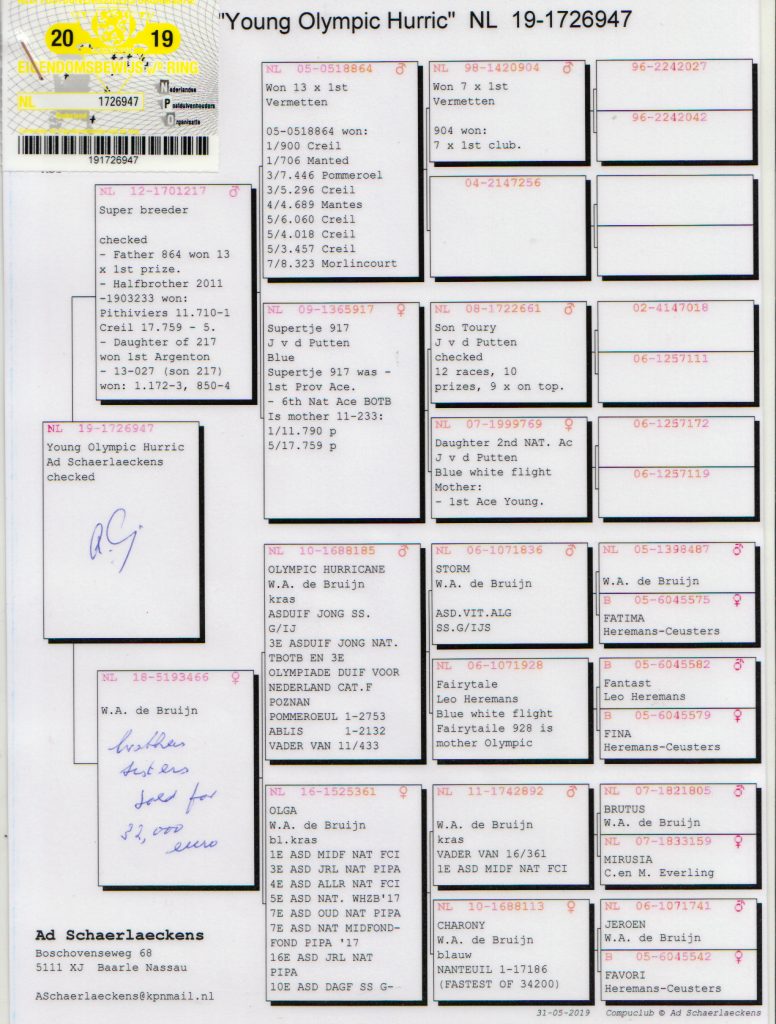 "Young Olympic Hurric" NL 19-1726947
20 19
EIGENDOMSBEWIJS v/e RING
NL 1726947
Nederlandse
Postduivenhouders
Organisatie
191726947
NL 19-1726947
Young Olympic Hurric
Ad Schaerlaeckens
checked
NL 12-1701217 ♂
Super breeder
checked
- Father 864 won 13
x 1st prize.
- Halfbrother 2011
-1903233 won:
Pithiviers 11.710-1
Creil 17.759 - 5.
- Daughter of 217
won 1st Argenton
- 13-027 (son 217)
won: 1.172-3, 850-4
NL 18-5193466 ♀
W.A. de Bruijn
brothers
sisters
sold for
32,000
euro
NL 05-0518864 ♂
Won 13 x 1st
Vermetten
05-0518864 won:
1/900 Creil
1/706 Manted
3/7.446 Pommeroel
3/5.296 Creil
4/4.689 Mantes
5/6.060 Creil
5/4.018 Creil
5/3.457 Creil
7/8.323 Morlincourt
NL 09-1365917 ♀
Supertje 917
J v d Putten
Blue
Supertje 917 was -
1st Prov Ace.
- 6th Nat Ace BOTB
Is mother 11-233:
1/11.790 p
5/17.759 p
NL 10-1688185 ♂
OLYMPIC HURRICANE
W.A. de Bruijn
kras
ASDUIF JONG SS.
G/IJ
3E ASDUIF JONG NAT.
TBOTB EN 3E
OLYMPIADE DUIF VOOR
NEDERLAND CAT.F
POZNAN
POMMEROEUL 1-2753
ABLIS 1-2132
VADER VAN 11/433
NL 16-1525361 ♀
OLGA
W.A. de Bruijn
bl.kras
1E ASD MIDF NAT FCI
3E ASD JRL NAT PIPA
4E ASD ALLR NAT FCI
5E ASD NAT. WHZB'17
7E ASD OUD NAT PIPA
7E ASD NAT MIDFOND-
FOND PIPA '17
16E ASD JRL NAT
PIPA
10E ASD DAGF SS G-
NL 98-1420904 ♂
Won 7 x 1st
Vermetten
904 won:
7 x 1st club.
04-2147256
NL 08-1722661 ♂
Son Toury
J v d Putten
checked
12 races, 10
prizes, 9 x on top.
NL 07-1999769 ♀
Daughter 2nd NAT. Ac
J v d Putten
Blue white flight
Mother:
- 1st Ace Young.
NL 06-1071836 ♂
STORM
W.A. de Bruijn
ASD.VIT.ALG
SS.G/IJS
NL 06-1071928
Fairytale
Leo Heremans
Blue white flight
Fairytaile 928 is
mother Olympic
NL 11-1742892 ♂
W.A. de Bruijn
kras
VADER VAN 16/361
1E ASD MIDF NAT FCI
NL 10-1688113 ♀
CHARONY
W.A. de Bruijn
blauw
NANTEUIL 1-17186
(FASTEST OF 34200)
96-2242027
96-2242042
02-4147018
06-1257111
06-1257172
06-1257119
NL 05-1398487 ♂
W.A. de Bruijn
B 05-6045575 ♀
FATIMA
Heremans-Ceusters
B 05-6045582 ♂
Fantast
Leo Heremans
B 05-6045579 ♀
FINA
Heremans-Ceusters
NL 07-1821805 ♂
BRUTUS
W.A. de Bruijn
NL 07-1833159 ♀
MIRUSIA
C.en M. Everling
NL 06-1071741 ♂
JEROEN
W.A. de Bruijn
B 05-6045542 ♀
FAVORI
Heremans-Ceusters
Ad Schaerlaeckens
Boschovenseweg 68
5111 XJ Baarle Nassau
ASchaerlaeckens@kpnmail.nl
31-05-2019 Compuclub © Ad Schaerlaeckens